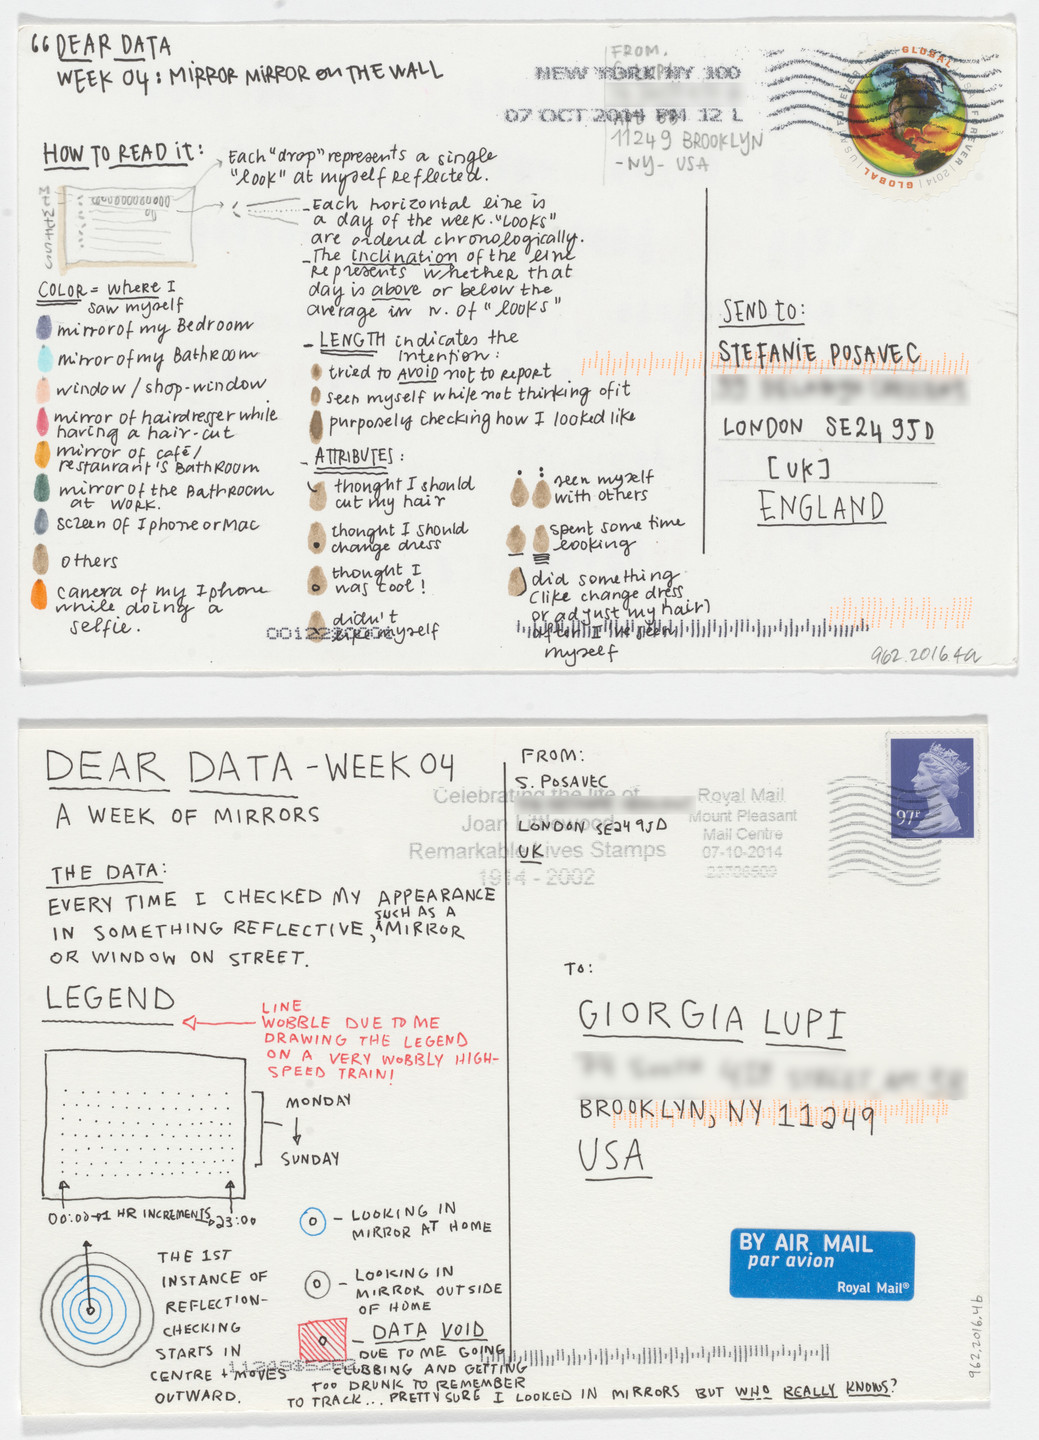 “DEAR DATA
WEEK 04: MIRROR MIRROR ON THE WALL
FROM.
NEW YORK NY 100
07 OCT 2014 PM 12 L
11249 BROOKLYN
-NY- USA
GLOBAL
FOREVER
2014
USA
GLOBAL
HOW TO READ IT:
Each "drop" represents a single
"look" at myself reflected.
- Each horizontal line is
a day of the week. "LOOKS"
are ordered chronologically.
- The inclination of the line
represents whether that
day is above or below the
average in n. of "looks"
COLOR = where I
saw myself
mirror of my Bedroom
mirror of my Bathroom
window / shop-window
mirror of hairdresser while
having a hair-cut
mirror of café/
restaurant's BathRoom
mirror of the BathRoom
at work.
screen of Iphone or Mac
others
camera of my Iphone
while doing a
selfie.
- LENGTH indicates the
intention:
tried to AVOID not to report
seen myself while not thinking of it
purposely checking how I looked like
- ATTRIBUTES:
thought I should
cut my hair
thought I should
change dress
thought I
was cool!
didn't
like myself
seen myself
with others
spent some time
looking
did something
(like change dress
or adjust my hair)
after I've seen
myself
SEND TO:
STEFANIE POSAVEC
LONDON SE24 9JD
[UK]
ENGLAND
962.2016.4a
DEAR DATA - WEEK 04
A WEEK OF MIRRORS
THE DATA:
EVERY TIME I CHECKED MY APPEARANCE
IN SOMETHING REFLECTIVE, SUCH AS A MIRROR
OR WINDOW ON STREET.
LEGEND
LINE
WOBBLE DUE TO ME
DRAWING THE LEGEND
ON A VERY WOBBLY HIGH-
SPEED TRAIN!
MONDAY
SUNDAY
00:00→1 HR INCREMENTS→23:00
THE 1ST
INSTANCE OF
REFLECTION-
CHECKING
STARTS IN
CENTRE + MOVES
OUTWARD.
- LOOKING IN
MIRROR AT HOME
- LOOKING IN
MIRROR OUTSIDE
OF HOME
- DATA VOID
DUE TO ME GOING
CLUBBING AND GETTING
TOO DRUNK TO REMEMBER
TO TRACK... PRETTY SURE I LOOKED IN MIRRORS BUT WHO REALLY KNOWS?
FROM:
S. POSAVEC
LONDON SE24 9JD
UK
Celebrating the life of
Joan Littlewood
Remarkable Lives Stamps
1914 - 2002
Royal Mail
Mount Pleasant
Mail Centre
07-10-2014
97P
TO:
GIORGIA LUPI
BROOKLYN, NY 11249
USA
BY AIR MAIL
par avion
Royal Mail®
962.2016.4b